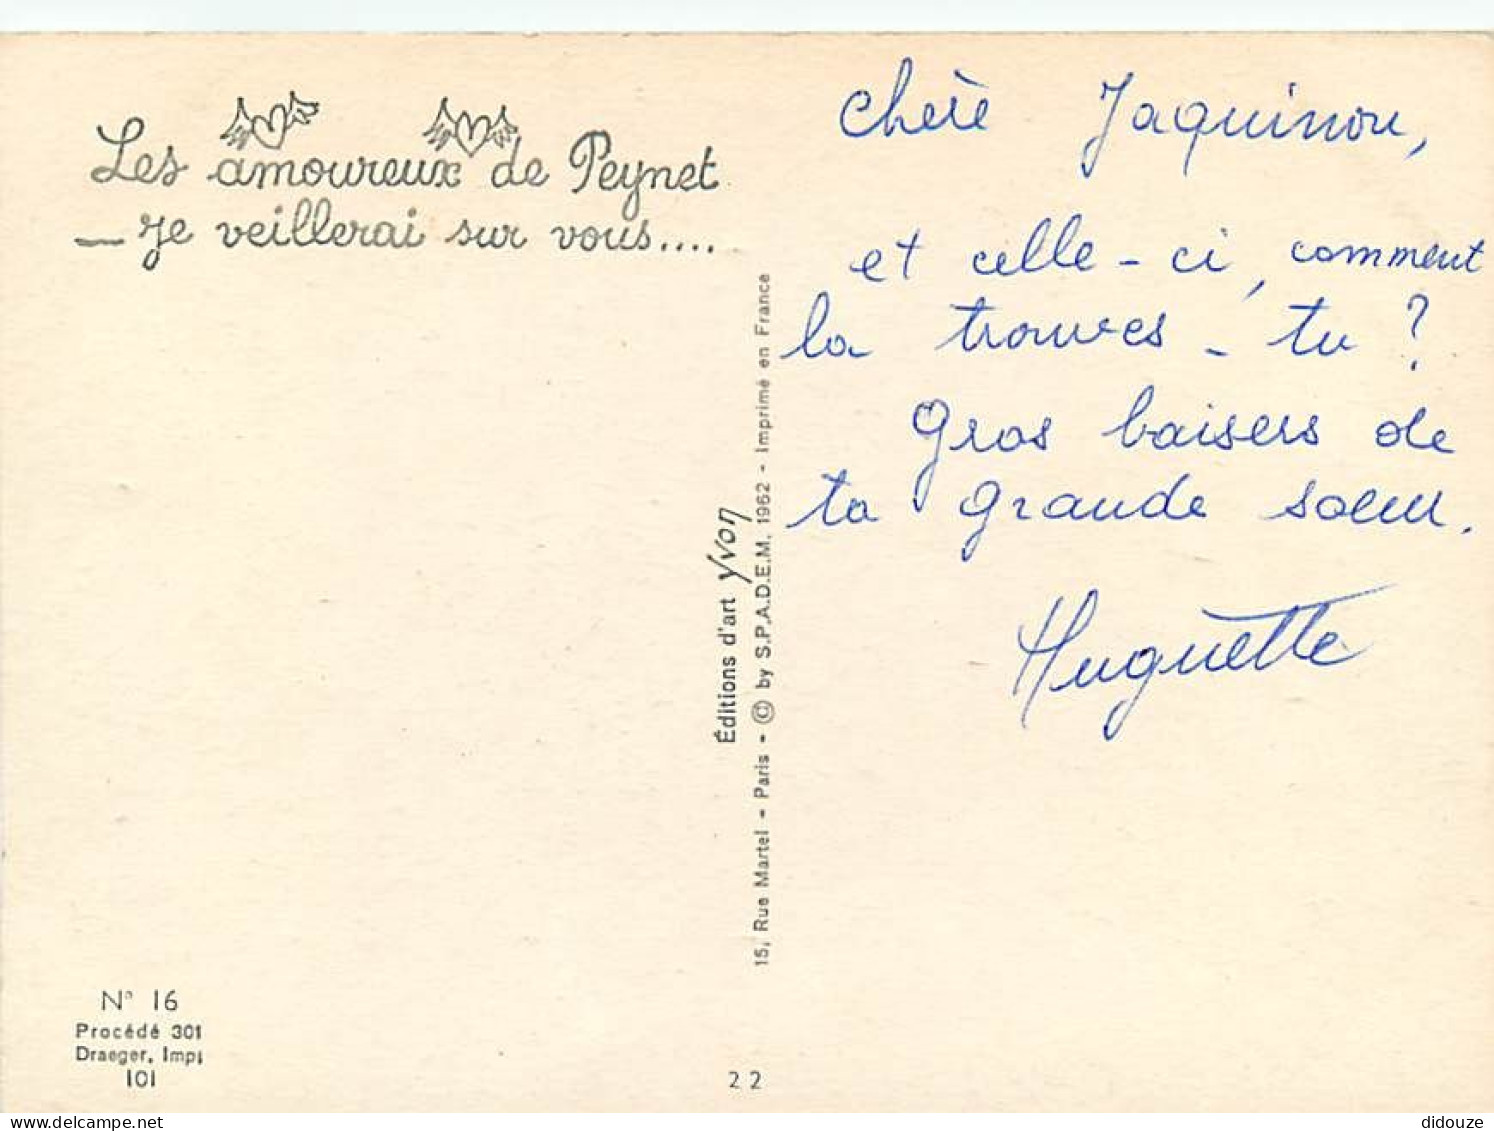 Les amoureux de Peynet
— Je veillerai sur vous....
Éditions d'art Yvon
15, Rue Martel - Paris - © by S.P.A.D.E.M. 1962 - Imprimé en France
N° 16
Procédé 301
Draeger, Imp.
101
22
Chère Jaquinou,
et celle-ci, comment
la trouves-tu ?
Gros baisers de
ta grande soeur.
Huguette
didouze